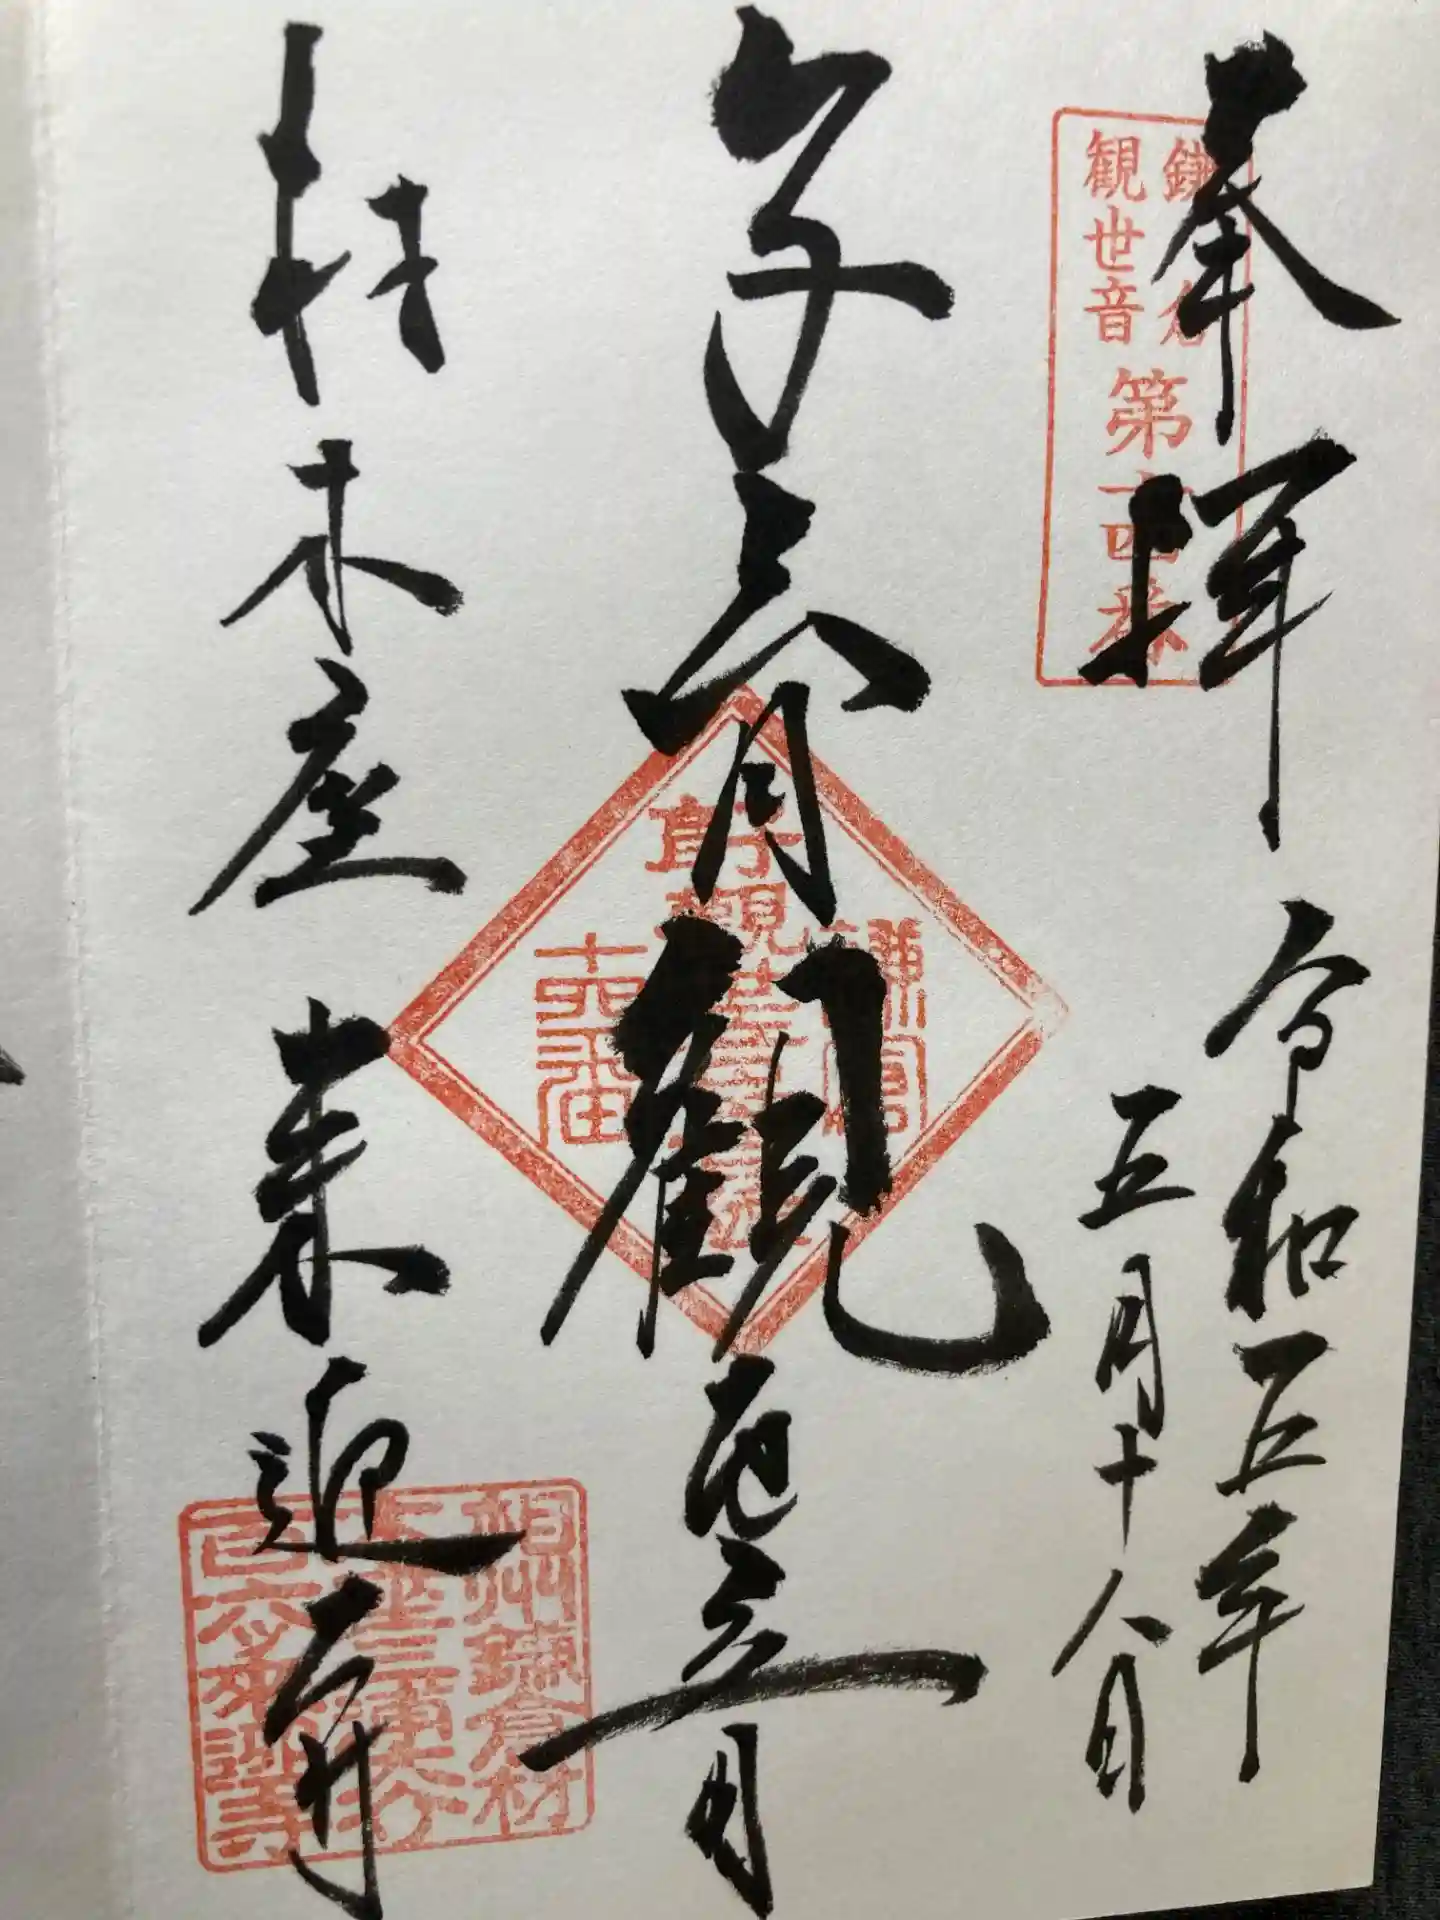 奉拝
令和五年
五月十八日
鎌倉
観世音
第十四番
子育観世音
鎌倉
観世音
十四番
材木座 来迎寺
相州鎌倉材
木座
来迎寺